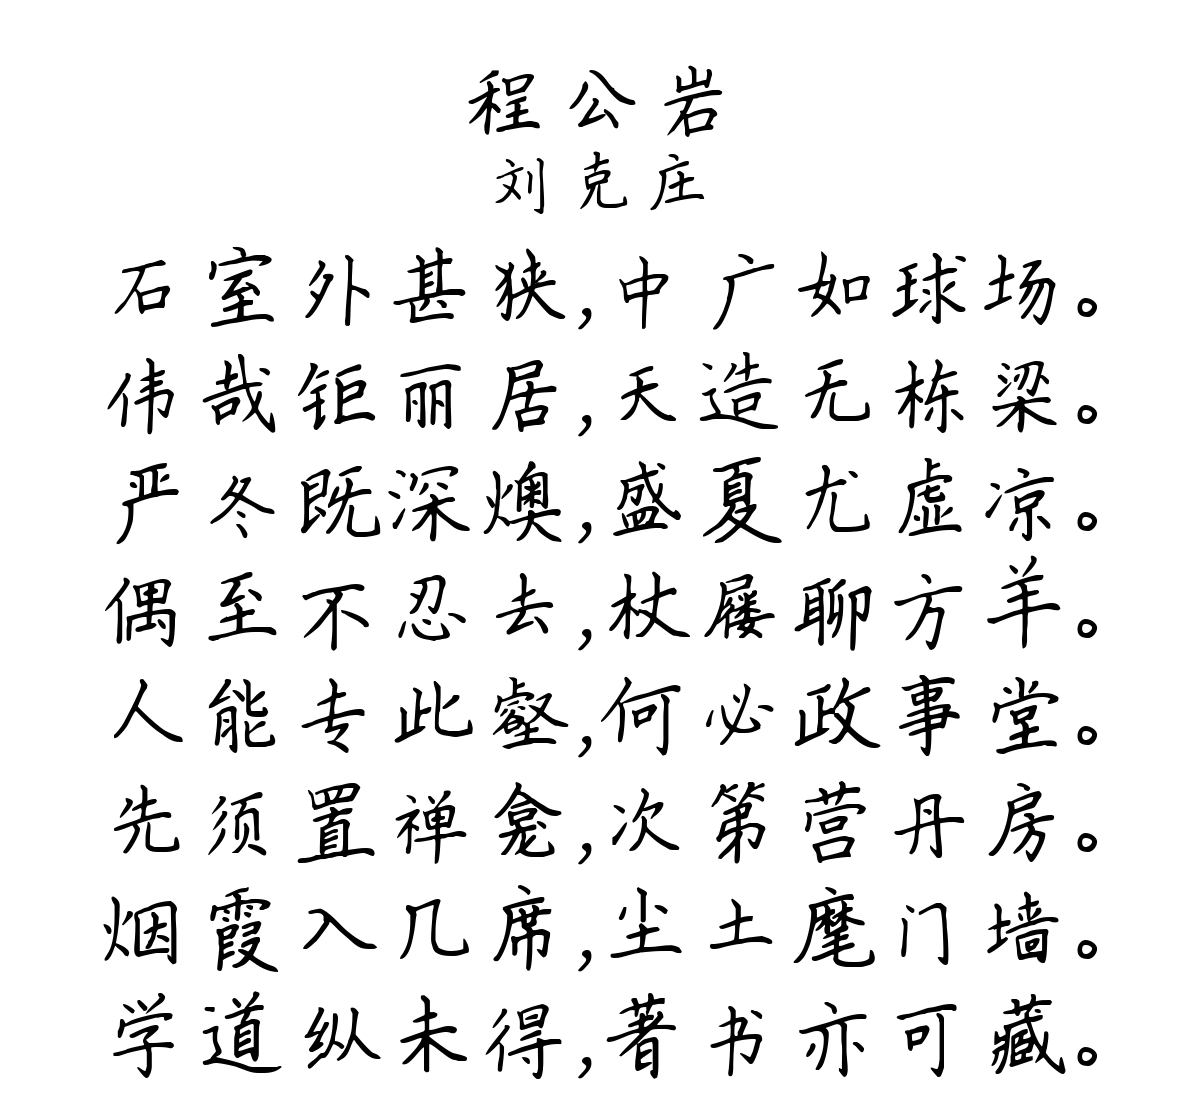 程公岩
刘克庄
石室外甚狭,中广如球场。
伟哉钜丽居,天造无栋梁。
严冬既深燠,盛夏尤虚凉。
偶至不忍去,杖屦聊方羊。
人能专此壑,何必政事堂。
先须置禅龛,次第营丹房。
烟霞入几席,尘土麾门墙。
学道纵未得,著书亦可藏。